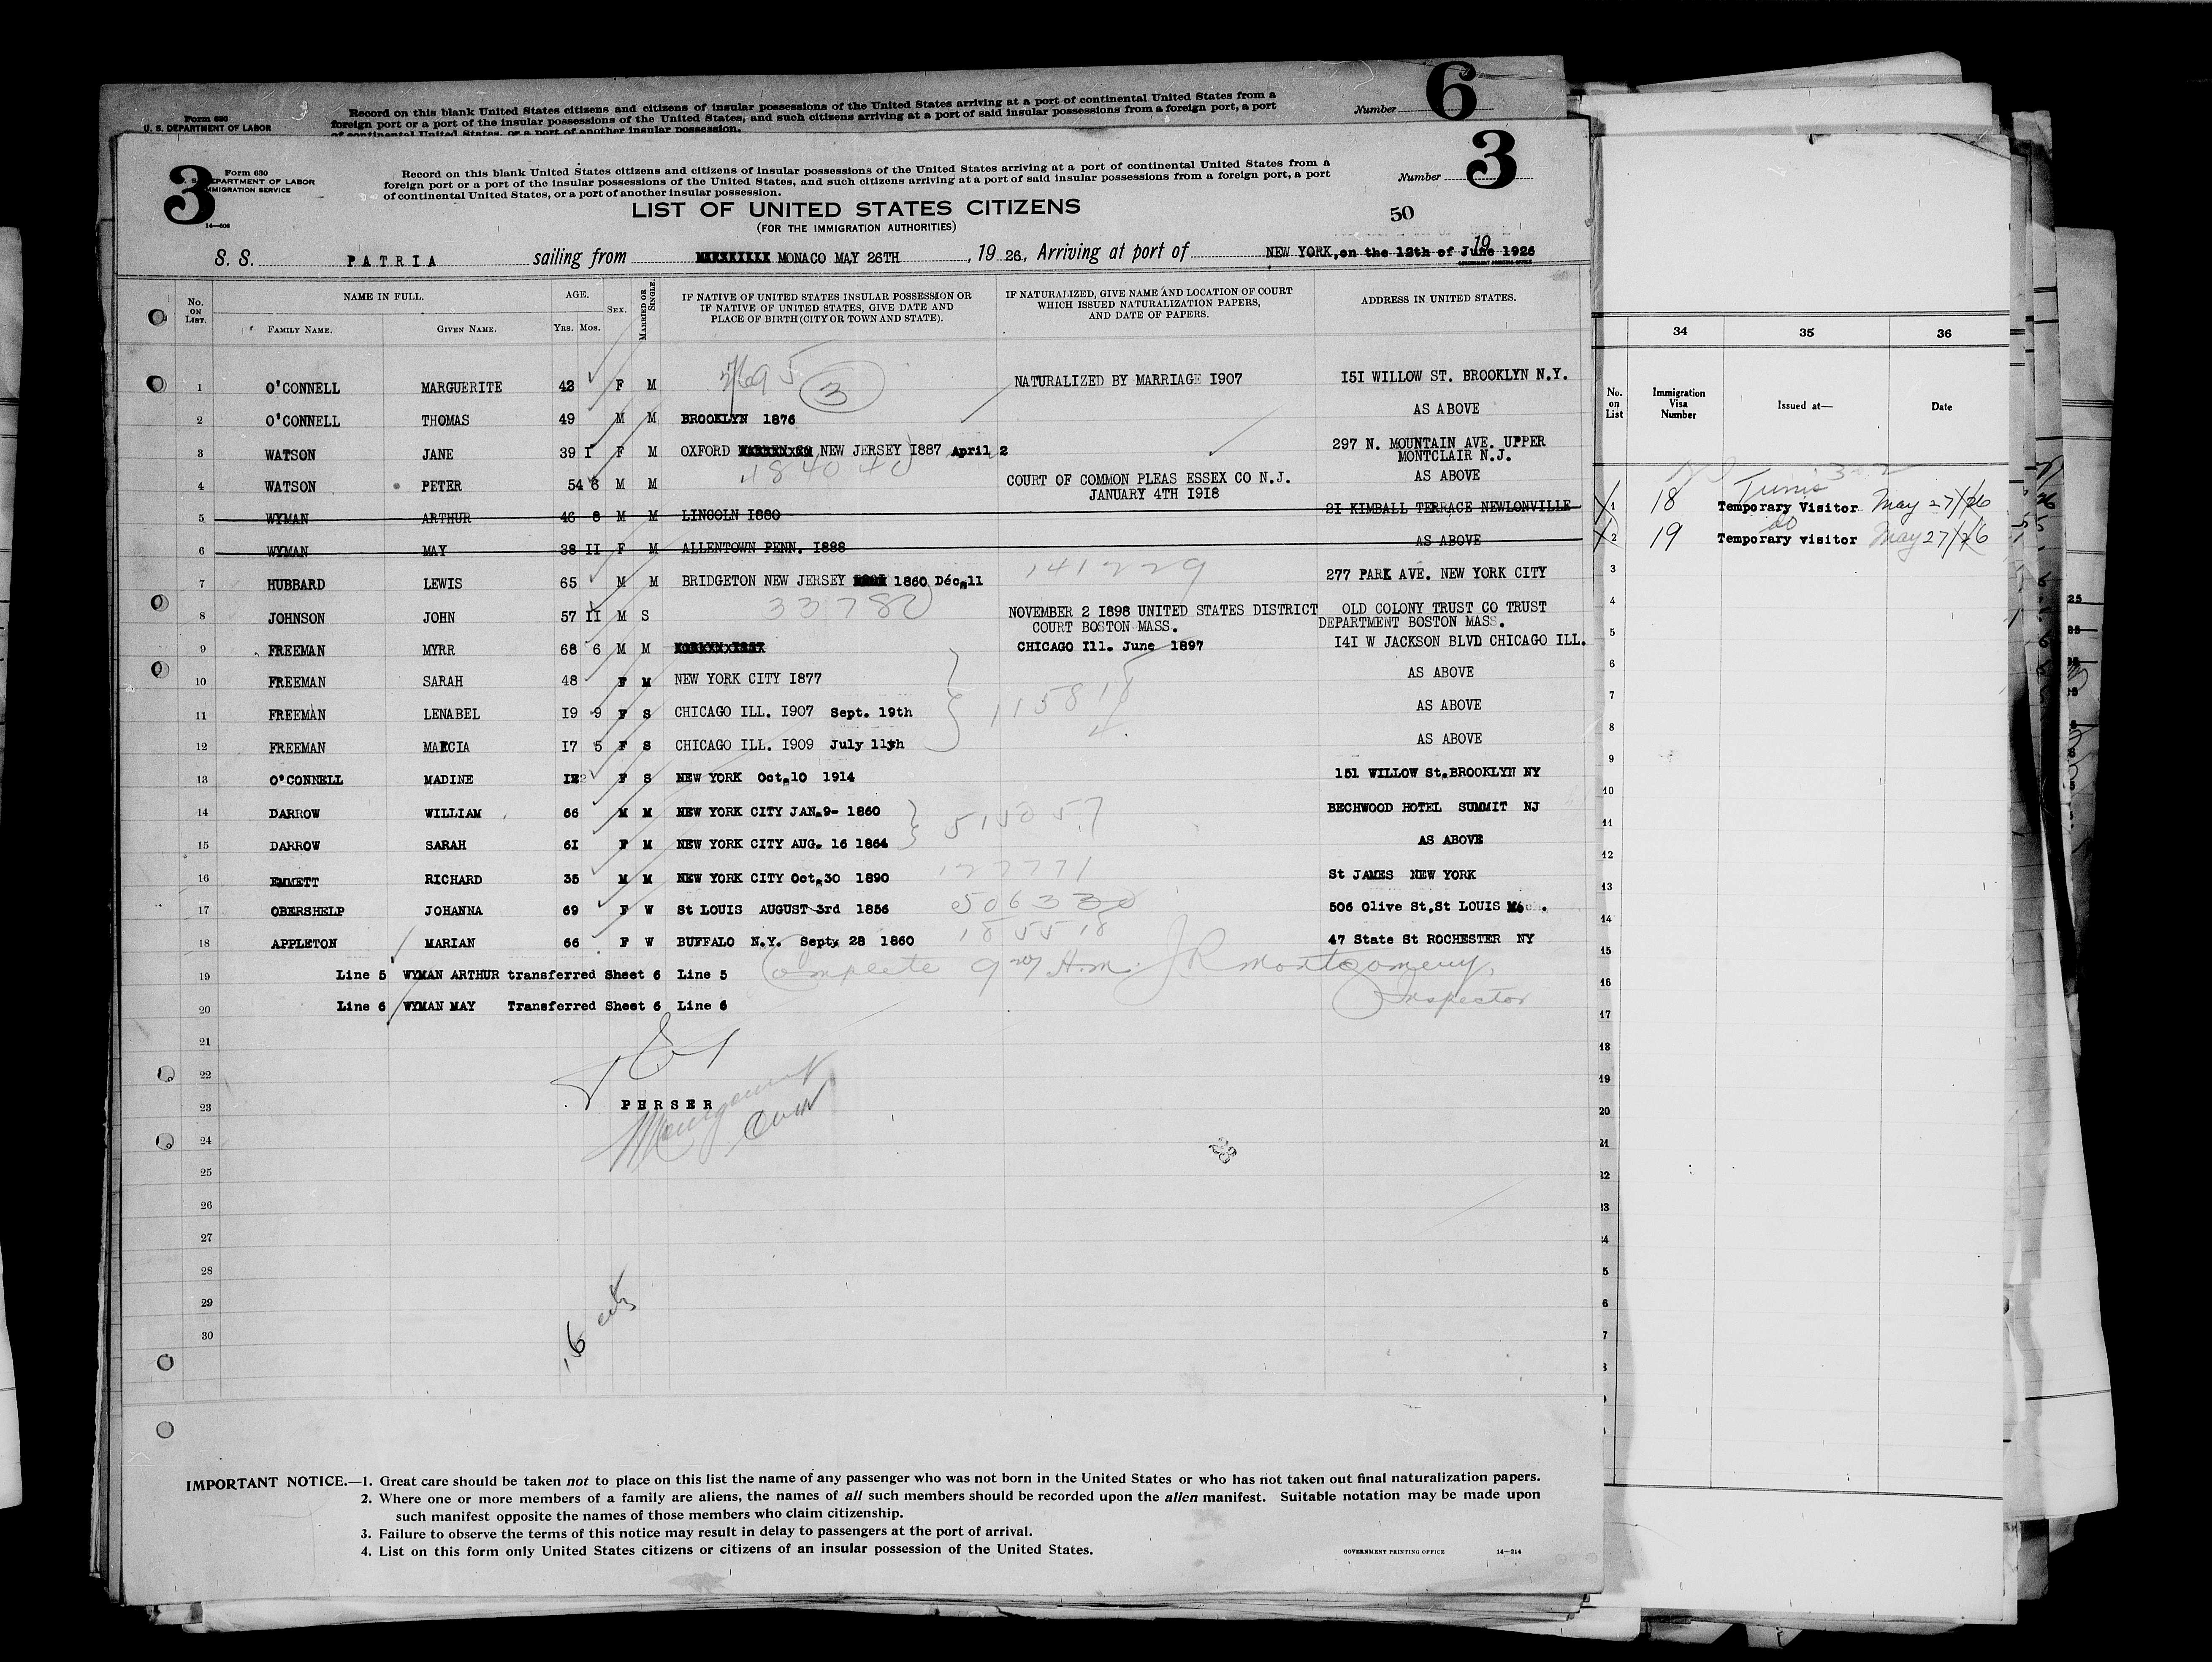 Form 630
U. S. DEPARTMENT OF LABOR
Record on this blank United States citizens and citizens of insular possessions of the United States arriving at a port of continental United States from a
foreign port or a port of the insular possessions of the United States, and such citizens arriving at a port of said insular possessions from a foreign port, a port
of continental United States, or a port of another insular possession.
Number 6
3
Form 630
U. S. DEPARTMENT OF LABOR
IMMIGRATION SERVICE
14—608
Record on this blank United States citizens and citizens of insular possessions of the United States arriving at a port of continental United States from a
foreign port or a port of the insular possessions of the United States, and such citizens arriving at a port of said insular possessions from a foreign port, a port
of continental United States, or a port of another insular possession.
Number 3
LIST OF UNITED STATES CITIZENS
(FOR THE IMMIGRATION AUTHORITIES)
50
S. S. PATRIA sailing from MONACO MAY 26TH, 19 26, Arriving at port of NEW YORK, on the 12th of June 1926 19
GOVERNMENT PRINTING OFFICE
No. ON LIST. NAME IN FULL. AGE. SEX. MARRIED OR SINGLE. IF NATIVE OF UNITED STATES INSULAR POSSESSION OR IF NATIVE OF UNITED STATES, GIVE DATE AND PLACE OF BIRTH (CITY OR TOWN AND STATE). IF NATURALIZED, GIVE NAME AND LOCATION OF COURT WHICH ISSUED NATURALIZATION PAPERS, AND DATE OF PAPERS. ADDRESS IN UNITED STATES.
FAMILY NAME. GIVEN NAME. Yrs. Mos.
3
1 O'CONNELL MARGUERITE 42 F M NATURALIZED BY MARRIAGE I907 I5I WILLOW ST. BROOKLYN N.Y.
2 O'CONNELL THOMAS 49 M M BROOKLYN 1876 AS ABOVE
3 WATSON JANE 39 I F M OXFORD NEW JERSEY I887 April 2 297 N. MOUNTAIN AVE. UPPER
MONTCLAIR N.J.
184040
4 WATSON PETER 54 8 M M COURT OF COMMON PLEAS ESSEX CO N.J. AS ABOVE
JANUARY 4TH I9I8
5 WYMAN ARTHUR 46 8 M M LINCOLN I880 2I KIMBALL TERRACE NEWLONVILLE
6 WYMAN MAY 38 II F M ALLENTOWN PENN. I888 AS ABOVE
141229
7 HUBBARD LEWIS 65 M M BRIDGETON NEW JERSEY 1860 Déc,11 277 PARK AVE. NEW YORK CITY
33780
8 JOHNSON JOHN 57 II M S NOVEMBER 2 I898 UNITED STATES DISTRICT OLD COLONY TRUST CO TRUST
COURT BOSTON MASS. DEPARTMENT BOSTON MASS.
9 FREEMAN MYRR 68 6 M M CHICAGO Ill. June 1897 I4I W JACKSON BLVD CHICAGO ILL.
10 FREEMAN SARAH 48 F M NEW YORK CITY I877 AS ABOVE
11 FREEMAN LENABEL I9 9 F S CHICAGO ILL. I907 Sept. 19th 115818 AS ABOVE
12 FREEMAN MARCIA I7 5 F S CHICAGO ILL. I909 July 11th AS ABOVE
13 O'CONNELL MADINE F S NEW YORK Oct,10 1914 151 WILLOW St,BROOKLYN NY
14 DARROW WILLIAM 66 M M NEW YORK CITY JAN,9- 1860 BECHWOOD HOTEL SUMMIT NJ
15 DARROW SARAH 6I F M NEW YORK CITY AUG. 16 1864 AS ABOVE
16 EMMETT RICHARD 35 M M NEW YORK CITY Oct,30 1890 St JAMES NEW YORK
17 OBERSHELP JOHANNA 69 F W St LOUIS AUGUST 3rd 1856 506330 506 Olive St,St LOUIS
18 APPLETON MARIAN 66 F W BUFFALO N.Y. Septy 28 1860 185518 47 State St ROCHESTER NY
19 Line 5 WYMAN ARTHUR transferred Sheet 6 Line 5 Complete A.m. JR Montgomery,
20 Line 6 WYMAN MAY Transferred Sheet 6 Line 6 Inspector
21
22
23 PURSER
24
25
26
27
28
29
30
IMPORTANT NOTICE.—1. Great care should be taken not to place on this list the name of any passenger who was not born in the United States or who has not taken out final naturalization papers.
2. Where one or more members of a family are aliens, the names of all such members should be recorded upon the alien manifest. Suitable notation may be made upon
such manifest opposite the names of those members who claim citizenship.
3. Failure to observe the terms of this notice may result in delay to passengers at the port of arrival.
4. List on this form only United States citizens or citizens of an insular possession of the United States.
GOVERNMENT PRINTING OFFICE 14—314
34 35 36
No. on List Immigration Visa Number Issued at— Date
Tunis
1 18 Temporary Visitor May 27/26
do
2 19 Temporary visitor May 27/26
3
4
5
6
7
8
9
10
11
12
13
14
15
16
17
18
19
20
21
22
23
24
5
6
7